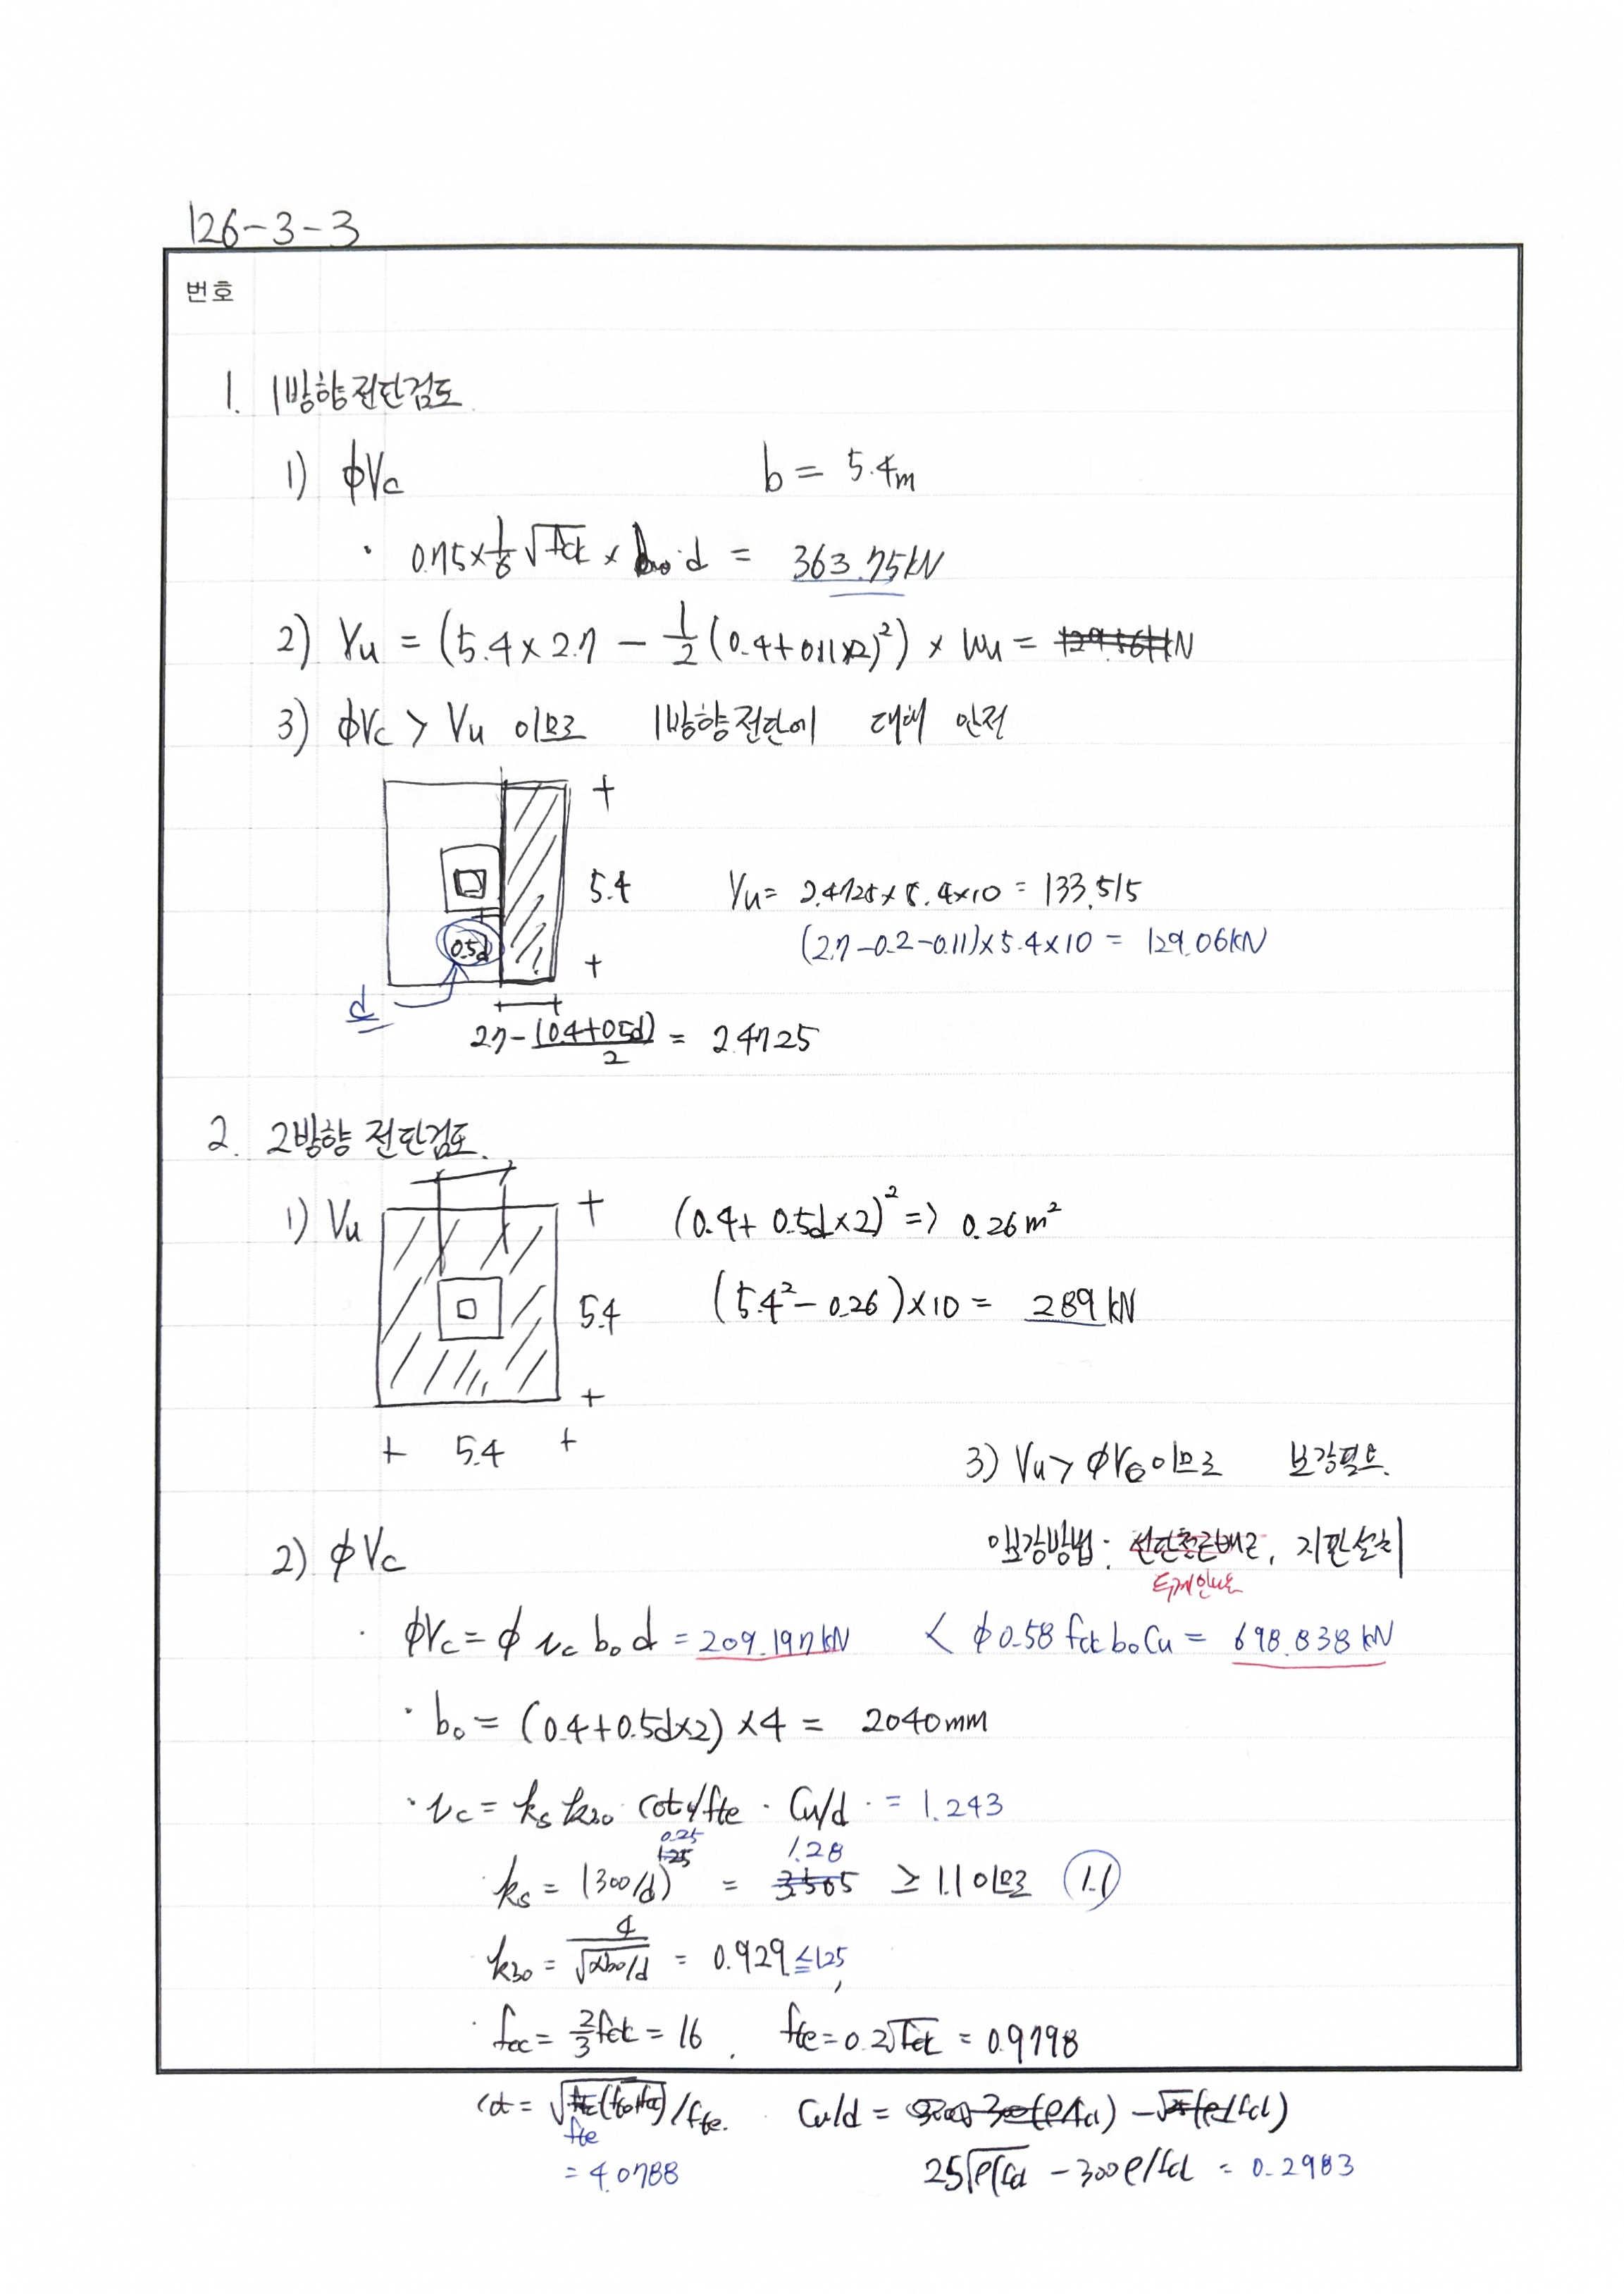 126-3-3
번호
1. 1방향전단검토
1) ϕVc b = 5.4m
· 0.75×1/6√fck × bw·d = 363.75kN
2) Vu = (5.4×2.7 - 1/2(0.4+0.11×2)²) × wu = kN
3) ϕVc > Vu 이므로 1방향전단에 대해 안전
+
5.4 Vu = 2.4725×5.4×10 = 133.515
0.5d (2.7-0.2-0.11)×5.4×10 = 129.06kN
+
d
2.7-(0.4+0.5d)/2 = 2.4725
2. 2방향 전단검토.
1) Vu + (0.4+0.5d×2)² => 0.26m²
5.4 (5.4²-0.26)×10 = 289kN
+
+ 5.4 +
3) Vu > ϕVc이므로 보강필요.
2) ϕVc
보강방법: 전단철근배근, 지판설치
두께
· ϕVc = ϕ vc b₀ d = 209.197kN < ϕ0.58 fck b₀Cu = 698.838kN
· b₀ = (0.4+0.5d×2)×4 = 2040mm
· vc = ks kbo cotψ fte · Cu/d · = 1.243
ks = (300/d)^0.25 = 1.28 ≥ 1.1이므로 1.1
kbo = 4/√(αb₀/d) = 0.929 ≤ 1.25
· fcc = 2/3fck = 16, fte = 0.2√fck = 0.9798
cot = √fte(fte+fcc)/fte. Cu/d =
= 4.0788 25√ρ/fck - 300ρ/fck = 0.2983